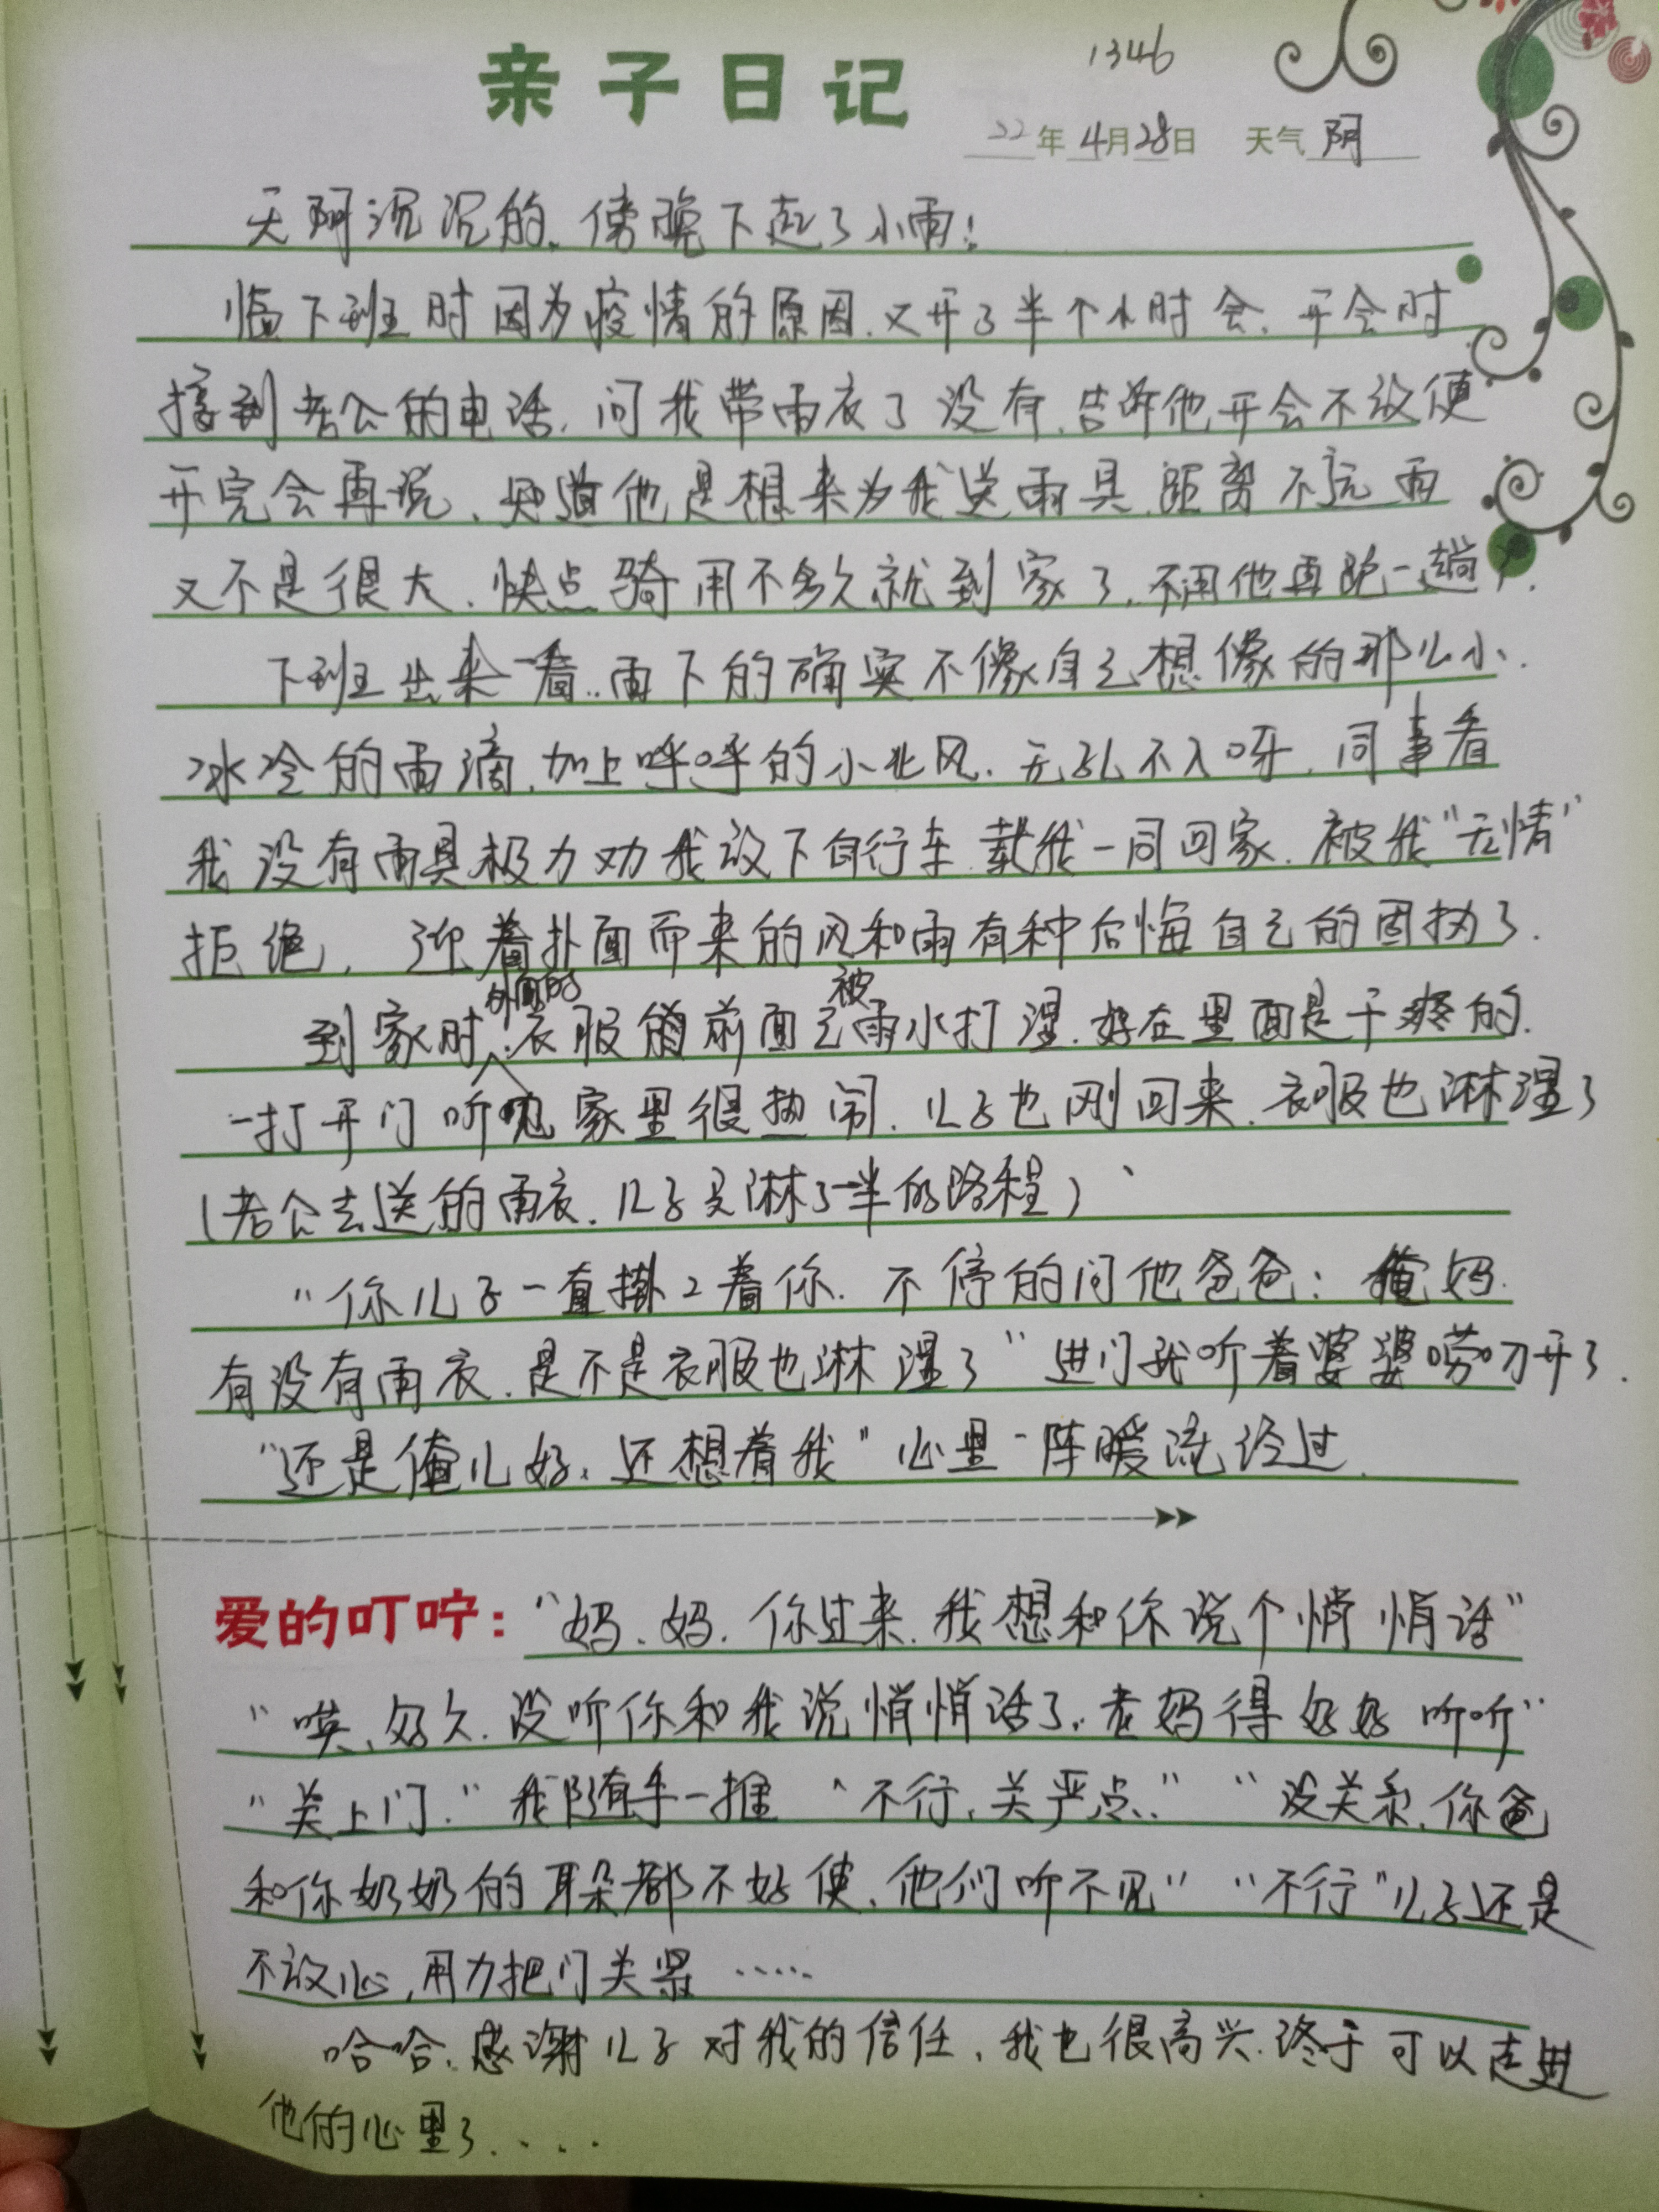 1346
亲子日记
22年4月28日 天气 阴
天阴沉沉的，傍晚下起了小雨！
临下班时因为疫情的原因，又开了半个小时会，开会时
接到老公的电话，问我带雨衣了没有，告诉他开会不方便
开完会再说，知道他是想来为我送雨具，距离不远雨
又不是很大，快点骑用不多久就到家了，不用他再跑一趟了。
下班出来一看，雨下的确实不像自己想像的那么小，
冰冷的雨滴，加上呼呼的小北风，无孔不入呀，同事看
我没有雨具极力劝我放下自行车，载我一同回家，被我“无情”
拒绝，迎着扑面而来的风和雨有种后悔自己的固执了。
到家时，外面的衣服前面已被雨水打湿，好在里面是干疼的，
一打开门听见家里很热闹，儿子也刚回来，衣服也淋湿了
（老公去送的雨衣，儿子只淋了一半的路程）、
“你儿子一直掛2着你，不停的问他爸爸：俺妈
有没有雨衣，是不是衣服也淋湿了”进门我听着婆婆唠叨开了。
“还是俺儿好，还想着我”心里一阵暖流经过。
爱的叮咛：“妈、妈，你过来，我想和你说个悄悄话”
“哄，好久，没听你和我说悄悄话了，老妈得好好听听”
“关上门，”我随手一推“不行，关严点，”“没关系，你爸
和你奶奶的耳朵都不好使，他们听不见”“不行”儿子还是
不放心，用力把门关紧……
哈哈，感谢儿子对我的信任，我也很高兴，终于可以走进
他的心里了....